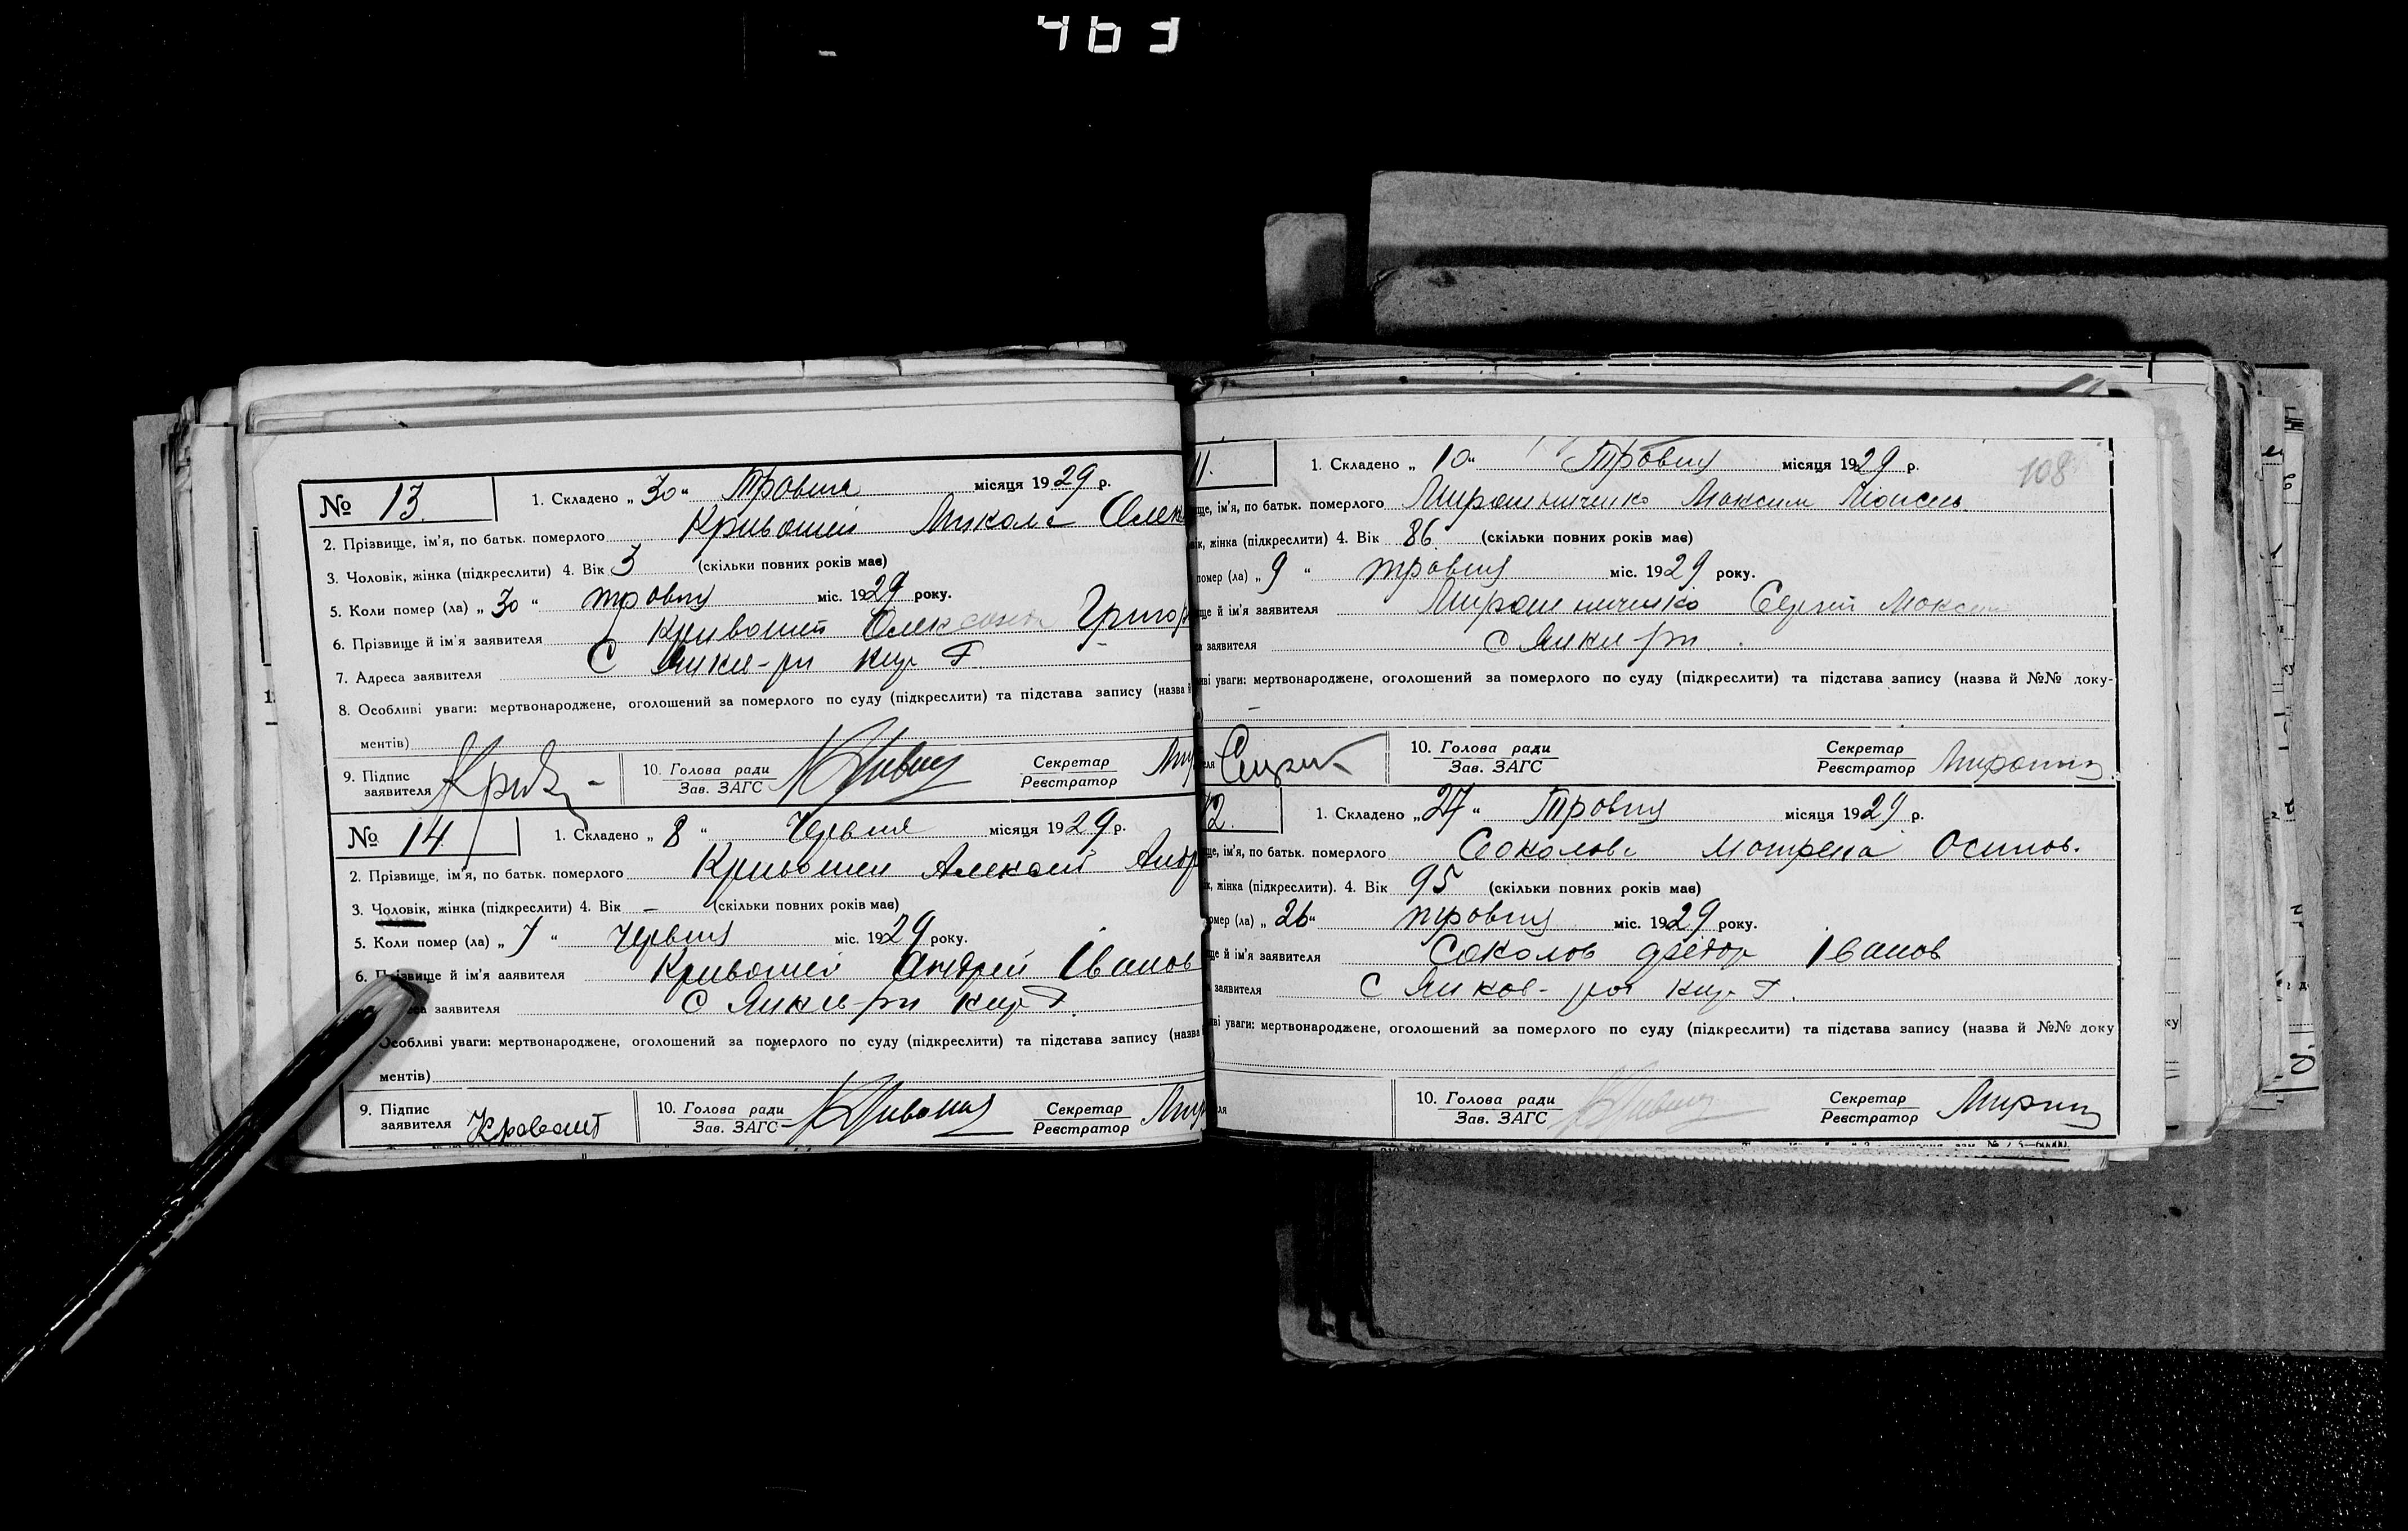 463
№ 13.
1. Складено „ 30 “ Травня місяця 1929 р.
2. Прізвище, ім'я, по батьк. померлого Кривошей Микола Олек
3. Чоловік, жінка (підкреслити) 4. Вік 3 (скільки повних років має)
5. Коли помер (ла) „ 30 “ травня міс. 1929 року.
6. Прізвище й ім'я заявителя Кривошей Олександ Григор
7. Адреса заявителя С
8. Особливі уваги: мертвонароджене, оголошений за померлого по суду (підкреслити) та підстава запису (назва й
ментів)
9. Підпис заявителя
10. Голова ради
Зав. ЗАГС
Секретар
Реєстратор
№ 14.
1. Складено „ 8 “ Червня місяця 1929 р.
2. Прізвище, ім'я, по батьк. померлого Кривошей Алексей Андр
3. Чоловік, жінка (підкреслити) 4. Вік – (скільки повних років має)
5. Коли помер (ла) „ 7 “ Червня міс. 1929 року.
6. Прізвище й ім'я заявителя Кривошей Андрей Іванов
заявителя С
Особливі уваги: мертвонароджене, оголошений за померлого по суду (підкреслити) та підстава запису (назва
ментів)
9. Підпис заявителя
10. Голова ради
Зав. ЗАГС
Секретар
Реєстратор
11.
1. Складено „ 10 “ Травня місяця 1929 р.
108
ще, ім'я, по батьк. померлого Мирошниченко Максим Моисеев.
ік, жінка (підкреслити) 4. Вік 86. (скільки повних років має)
помер (ла) „ 9 “ травня міс. 1929 року.
ще й ім'я заявителя Мирошниченко Сергей Максим
заявителя с
ві уваги: мертвонароджене, оголошений за померлого по суду (підкреслити) та підстава запису (назва й №№ доку-
10. Голова ради
Зав. ЗАГС
Секретар
Реєстратор
12.
1. Складено „ 27 “ Травня місяця 1929 р.
ще, ім'я, по батьк. померлого Соколова Мотрена Осипов.
к, жінка (підкреслити). 4. Вік 95 (скільки повних років має)
омер (ла) „ 26 “ травня міс. 1929 року.
ще й ім'я заявителя Соколов Федор Іванов
заявителя С
ві уваги: мертвонароджене, оголошений за померлого по суду (підкреслити) та підстава запису (назва й №№ доку
10. Голова ради
Зав. ЗАГС
Секретар
Реєстратор